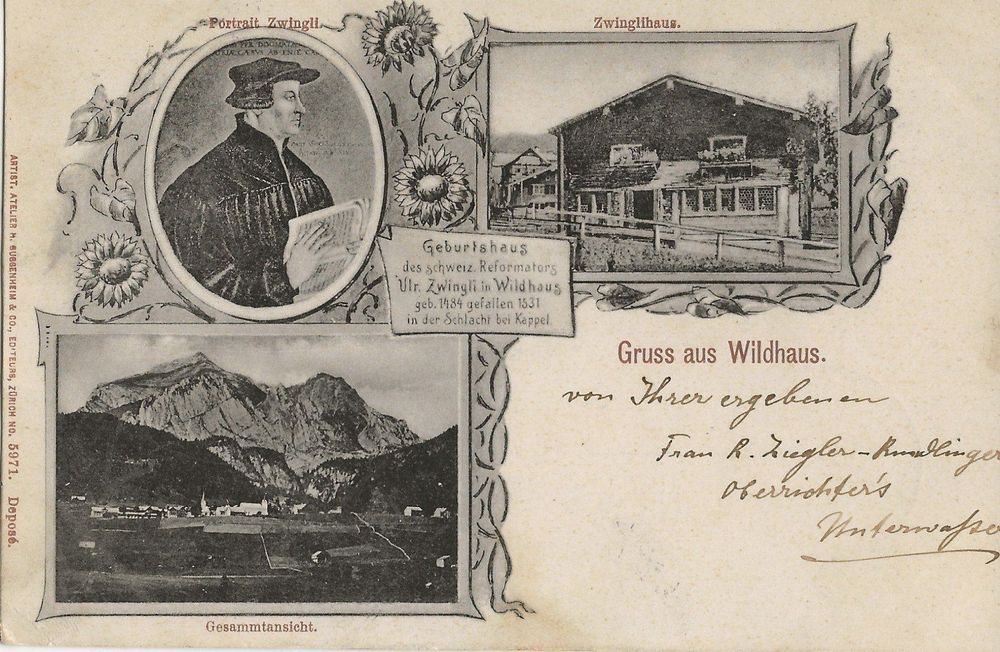 Portrait Zwingli.
Zwinglihaus.
Geburtshaus
des schweiz. Reformators
Ulr. Zwingli in Wildhaus
geb. 1484 gefallen 1531
in der Schlacht bei Kappel.
Gruss aus Wildhaus.
von Ihrer ergebenen
Frau R. Ziegler-
Oberrichter's
Unterwasse
Gesammtansicht.
ARTIST. ATELIER H. GUGGENHEIM & CO., EDITEURS, ZÜRICH NO. 5971. Deposé.